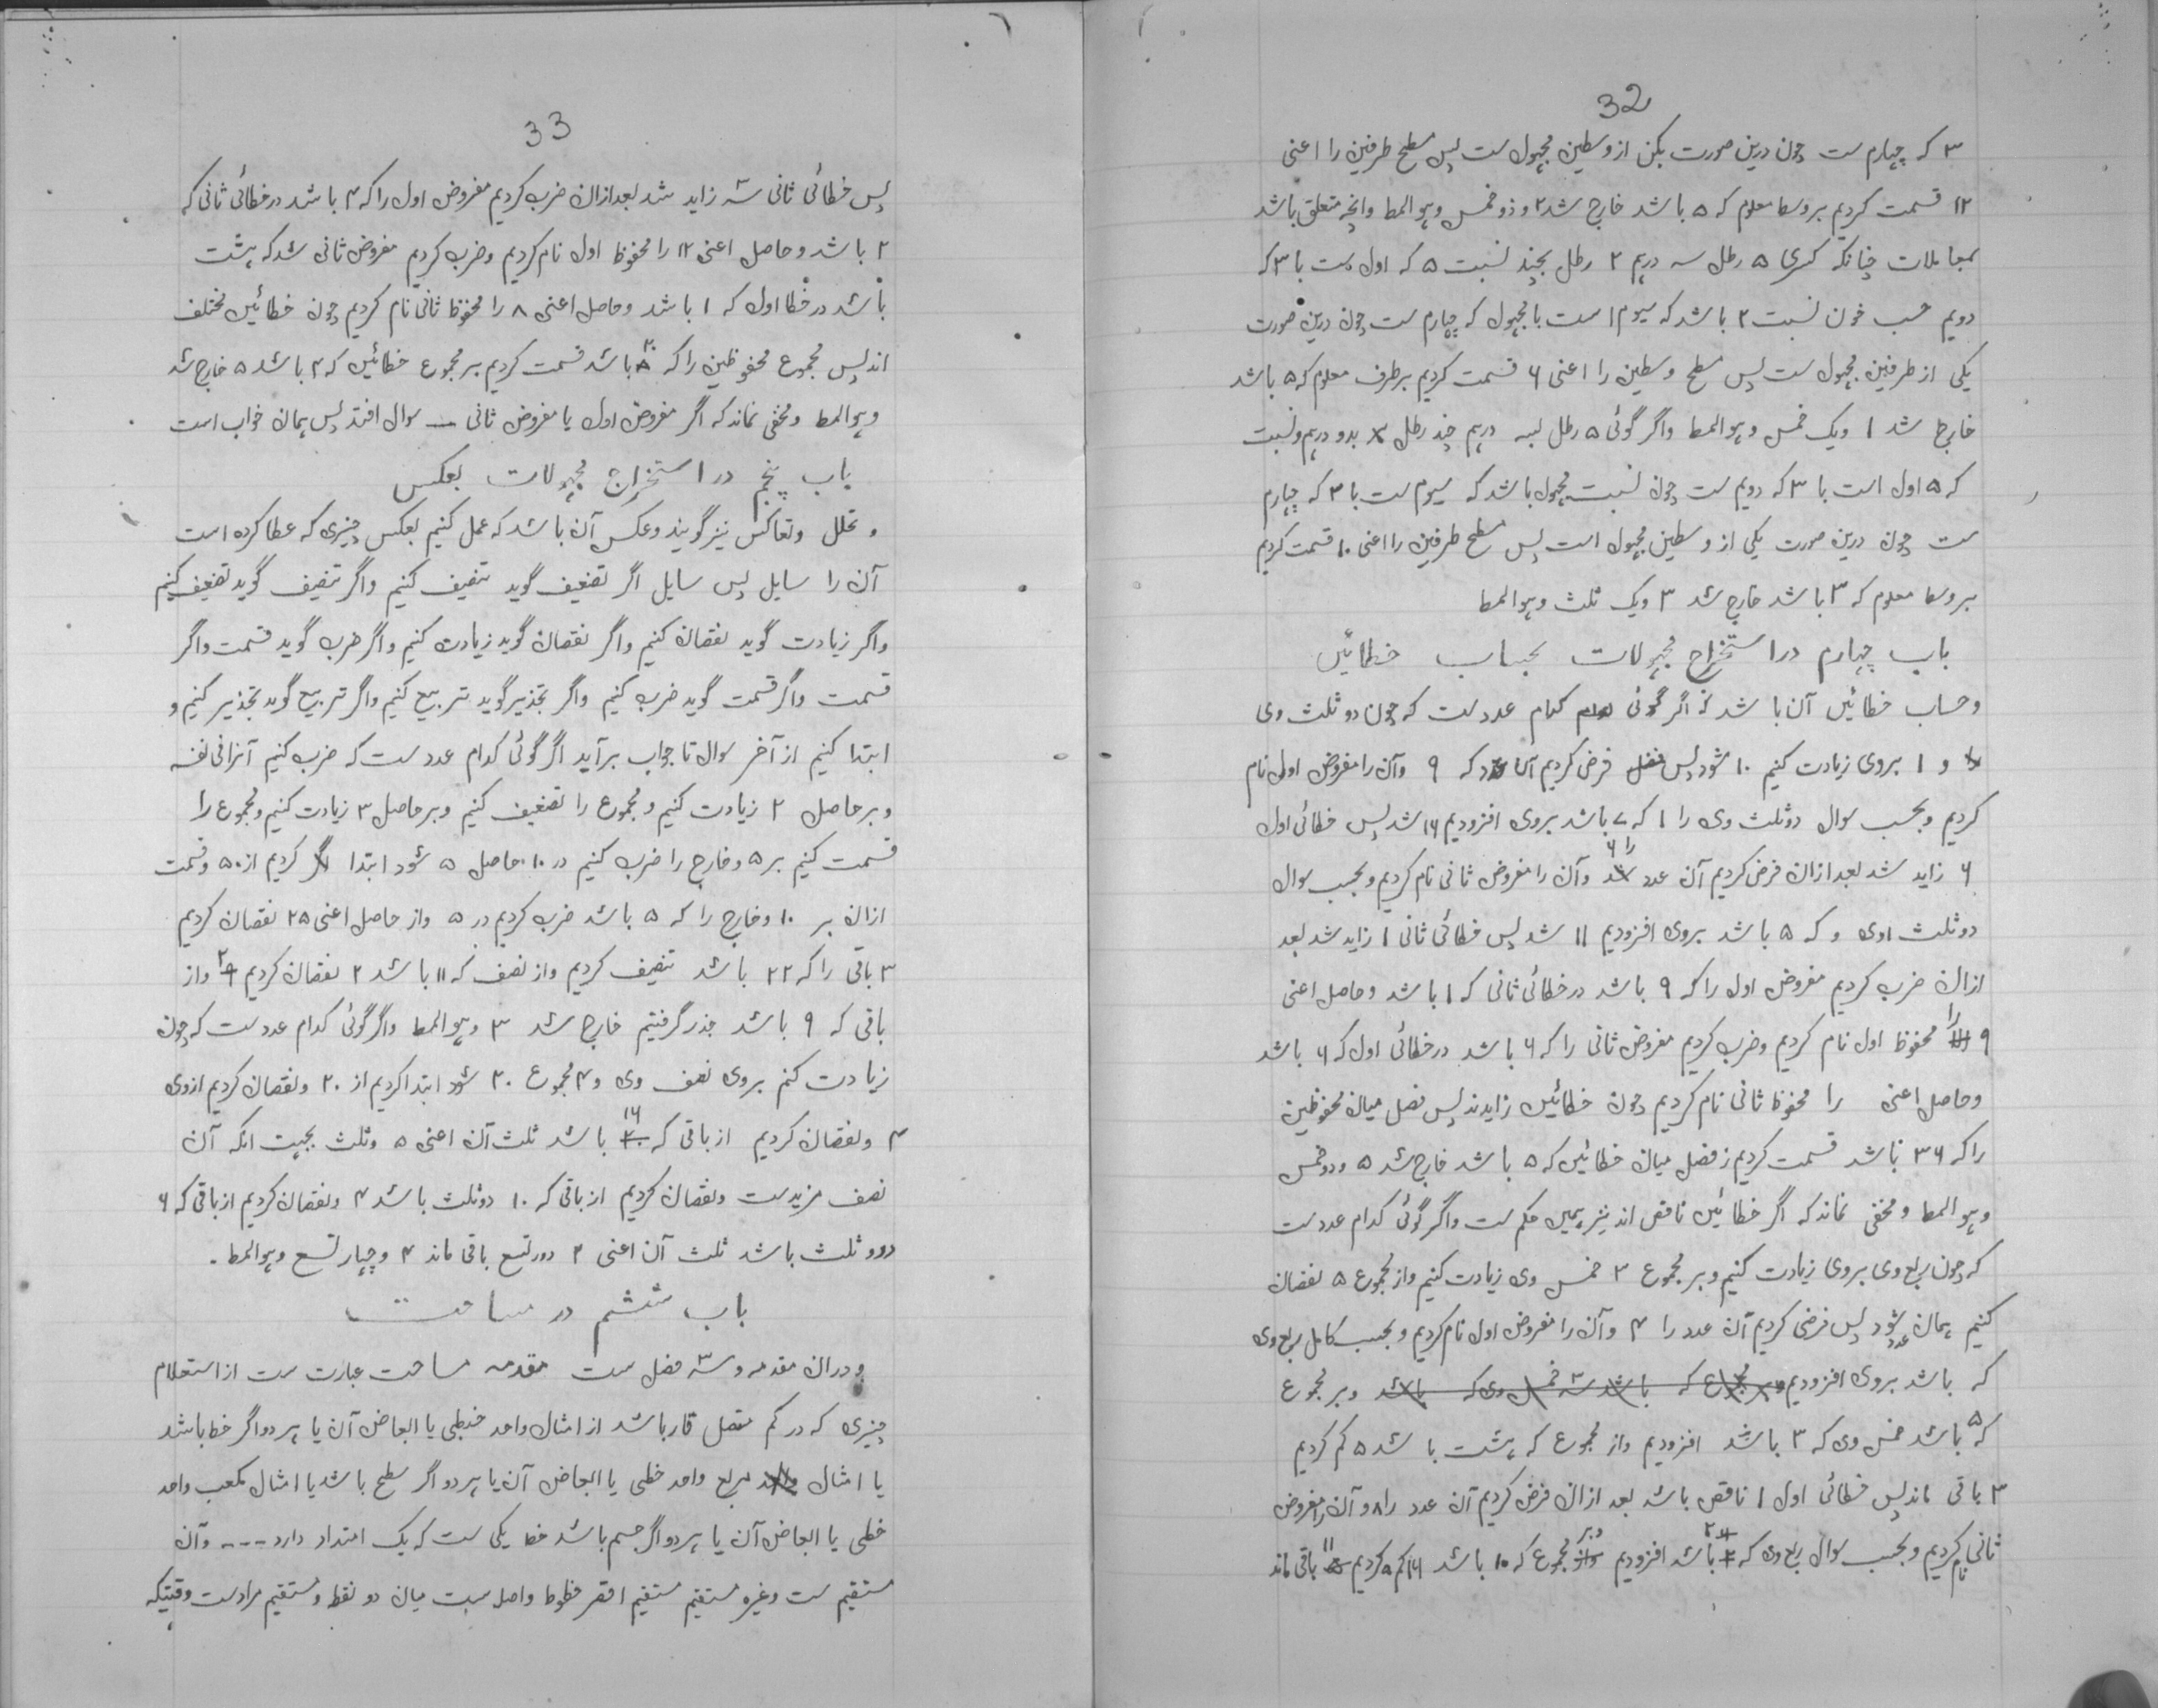 32
۳ که چهارم ست چون درین صورت یکن از وسطین مجهول ست پس مسطح طرفین را اعنی
۱۲ قسمت کردیم بر وسط معلوم که ۵ باشد خارج شد ۲ و دو خمس وهو المط وانچه متعلق باشد
بمعاملات چنانکه کسری ۵ رطل سه درهم ۲ رطل بچند نسبت ۵ که اول ست با ۳ که
دویم حسب خون نسبت ۲ باشد که سیوم است با مجهول که چهارم ست چون درین صورت
یکی از طرفین مجهول ست پس مسطح وسطین را اعنی ۶ قسمت کردیم بر طرف معلوم که ۵ باشد
خارج شد ۱ ویک خمس وهو المط واگر گوئی ۵ رطل بسه درهم چند رطل بدو درهم ونسبت
که ۵ اول است با ۳ که دویم ست چون نسبت مجهول باشد که سیوم ست با ۲ که چهارم
ست چون درین صورت یکی از وسطین مجهول است پس مسطح طرفین را اعنی ۱۰ قسمت کردیم
بر وسط معلوم که ۳ باشد خارج شد ۳ ویک ثلث وهو المط
باب چهارم در استخراج مجهولات بحساب خطائین
وحساب خطائین آن باشد که اگر گوئی کدام عدد ست که چون دو ثلث وی
و ۱ بروی زیادت کنیم ۱۰ شود پس فرض کردیم آن که ۹ وآن را مفروض اول نام
کردیم وبحسب سوال دو ثلث وی را ۱ که ۷ باشد بروی افزودیم ۱۶ شد پس خطائی اول
۶ زاید شد بعد ازان فرض کردیم آن عدد را ۶ وآن را مفروض ثانی نام کردیم وبحسب سوال
دو ثلث اوی و که ۵ باشد بروی افزودیم ۱۱ شد پس خطائی ثانی ۱ زاید شد بعد
ازان ضرب کردیم مفروض اول را که ۹ باشد در خطائی ثانی که ۱ باشد وحاصل اعنی
۹ را محفوظ اول نام کردیم وضرب کردیم مفروض ثانی را که ۶ باشد در خطائی اول که ۶ باشد
وحاصل اعنی را محفوظ ثانی نام کردیم چون خطائین زایدند پس فضل میان محفوظین
را که ۳۶ باشد قسمت کردیم ز فضل میان خطائین که ۵ باشد خارج شد ۵ ودو خمس
وهو المط ومخفی نماند که اگر خطائین ناقص اند نیز همین حکم ست واگر گوئی کدام عدد ست
که چون ربع وی بروی زیادت کنیم وبر مجموع ۳ خمس وی زیادت کنیم واز مجموع ۵ نقصان
کنیم همان عدد شود پس فرض کردیم آن عدد را ۴ وآن را مفروض اول نام کردیم وبحسب کامل ربع وی
که باشد بروی افزودیم وبر مجموع که باشد سه خمس وی که باشد وبر مجموع
که ۵ باشد خمس وی که ۳ باشد افزودیم واز مجموع که هشت باشد ۵ کم کردیم
۳ باقی ماند پس خطائی اول ۱ ناقص باشد بعد ازان فرض کردیم آن عدد را ۸ وآن را مفروض
ثانی نام کردیم وبحسب سوال ربع وی که ۲ باشد افزودیم وبر مجموع که ۱۰ باشد ۱۶ کم ۵ کردیم ۱۱ باقی ماند
33
پس خطائی ثانی سه زاید شد بعد ازان ضرب کردیم مفروض اول را که ۴ باشد در خطائی ثانی که
۳ باشد وحاصل اعنی ۱۲ را محفوظ اول نام کردیم وضرب کردیم مفروض ثانی شد که هشت
باشد در خطا اول که ۱ باشد وحاصل اعنی ۸ را محفوظ ثانی نام کردیم چون خطائین مختلف
اند پس مجموع محفوظین را که ۲۰ باشد قسمت کردیم بر مجموع خطائین که ۴ باشد ۵ خارج شد
وهو المط ومخفی نماند که اگر مفروض اول یا مفروض ثانی سوال افتد پس همان خواب است
باب پنجم در استخراج مجهولات بعکس
و تحلل وتعاکس نیز گویند وعکس آن باشد که عمل کنیم بعکس چیزی که عطا کرده است
آن را سایل پس سایل اگر تضعیف گوید تنصیف کنیم واگر تنصیف گوید تضعیف کنیم
واگر زیادت گوید نقصان کنیم واگر نقصان گوید زیادت کنیم واگر ضرب گوید قسمت واگر
قسمت واگر قسمت گوید ضرب کنیم واگر تجذیر گوید تربیع کنیم واگر تربیع گوید تجذیر کنیم و
ابتدا کنیم از آخر سوال تا جواب برآید اگر گوئی کدام عدد ست که ضرب کنیم آنرا فی نفسه
وبر حاصل ۲ زیادت کنیم ومجموع را تضعیف کنیم وبر حاصل ۳ زیادت کنیم ومجموع را
قسمت کنیم بر ۵ وخارج را ضرب کنیم در ۱۰ حاصل ۵ شود ابتدا کردیم از ۵۰ وقسمت
ازان بر ۱۰ وخارج را که ۵ باشد ضرب کردیم در ۵ واز حاصل اعنی ۲۵ نقصان کردیم
۳ باقی را که ۲۲ باشد تنصیف کردیم واز نصف که ۱۱ باشد ۲ نقصان کردیم واز
باقی که ۹ باشد جذر گرفتیم خارج شد ۳ وهو المط واگر گوئی کدام عدد ست که چون
زیادت کنم بروی نصف وی و ۴ مجموع ۲۰ شود ابتدا کردیم از ۲۰ ونقصان کردیم ازوی
۴ ونقصان کردیم از باقی که ۱۶ باشد ثلث آن اعنی ۵ وثلث بجهت انکه آن
نصف مزید ست ونقصان کردیم از باقی که ۱۰ دو ثلث باشد ۴ ونقصان کردیم از باقی که ۶
دوو ثلث باشد ثلث آن اعنی ۲ دو تسع باقی ماند ۴ وچهار تسع وهو المط -
باب ششم در مساحت
ودران مقدمه وسه فصل ست مقدمه مساحت عبارت ست از استعلام
چیزی که در کم متصل قار باشد از امثال واحد خطی یا ابعاض آن یا هر دو اگر خط باشد
یا امثال مربع واحد خطی یا ابعاض آن یا هر دو اگر سطح باشد یا امثال مکعب واحد
خطی یا ابعاض آن یا هر دو اگر جسم باشد خط یکی ست که یک امتداد دارد ---- وآن
مستقیم ست وغیره مستقیم مستقیم اقصر خطوط واصل ست میان دو نقطه ومستقیم مراد ست وقتیکه